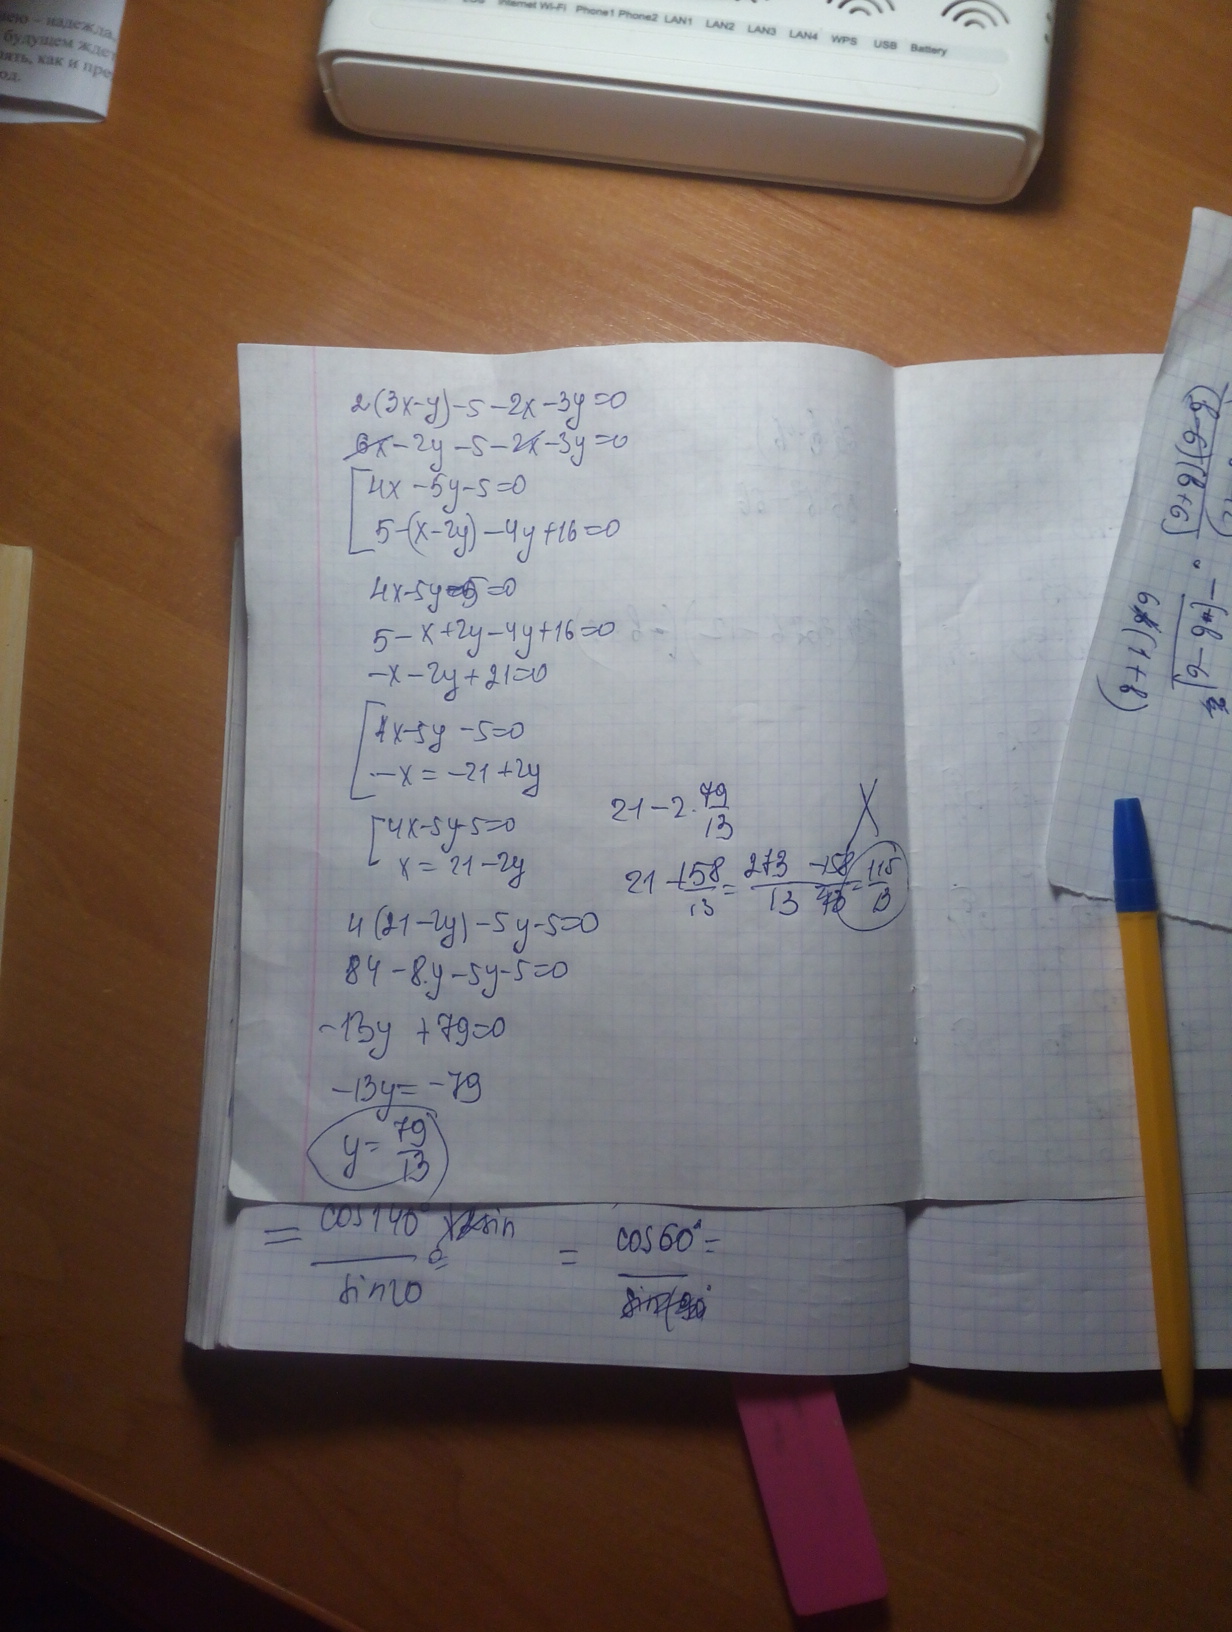 ею – надежда,
будущем ждет
ять, как и пре
од.
Internet Wi-Fi Phone1 Phone2 LAN1 LAN2 LAN3 LAN4 WPS USB Battery
2(3x-y)-5-2x-3y=0
6x-2y-5-2x-3y=0
4x-5y-5=0
5-(x-2y)-4y+16=0
4x-5y-5=0
5-x+2y-4y+16=0
-x-2y+21=0
4x-5y-5=0
-x=-21+2y
4x-5y-5=0
x=21-2y
4(21-2y)-5y-5=0
84-8y-5y-5=0
-13y+79=0
-13y=-79
y=79/13
x
21-2·79/13
21-158/13=273-158/13=115/13
=cos140°/sin20
=cos60°=